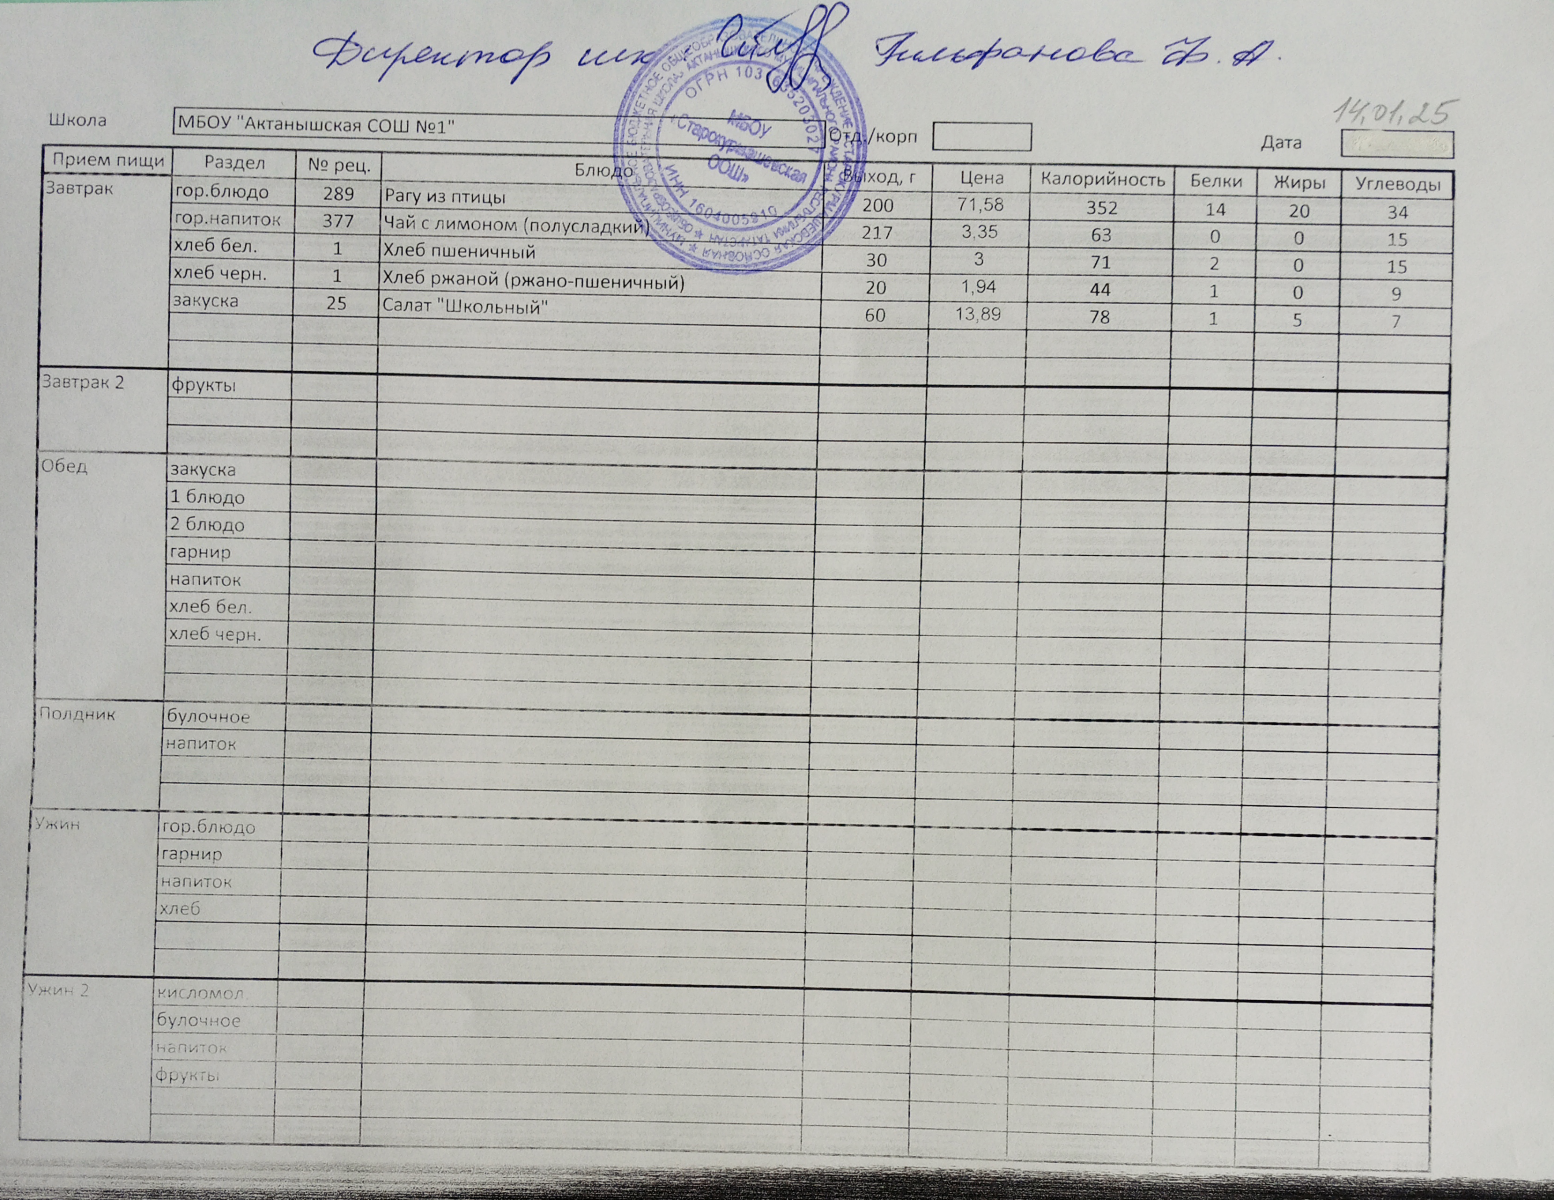 Директор шк. Гильфанова Ф. А.
14.01.25
Школа МБОУ "Актанышская СОШ №1" Отд./корп Дата
Прием пищи Раздел № рец. Блюдо Выход, г Цена Калорийность Белки Жиры Углеводы
Завтрак гор.блюдо 289 Рагу из птицы 200 71,58 352 14 20 34
гор.напиток 377 Чай с лимоном (полусладкий) 217 3,35 63 0 0 15
хлеб бел. 1 Хлеб пшеничный 30 3 71 2 0 15
хлеб черн. 1 Хлеб ржаной (ржано-пшеничный) 20 1,94 44 1 0 9
закуска 25 Салат "Школьный" 60 13,89 78 1 5 7
Завтрак 2 фрукты
Обед закуска
1 блюдо
2 блюдо
гарнир
напиток
хлеб бел.
хлеб черн.
Полдник булочное
напиток
Ужин гор.блюдо
гарнир
напиток
хлеб
Ужин 2 кисломол.
булочное
напиток
фрукты
МБОУ
«Старокурмашевская
ООШ»
ИНН 1604005810